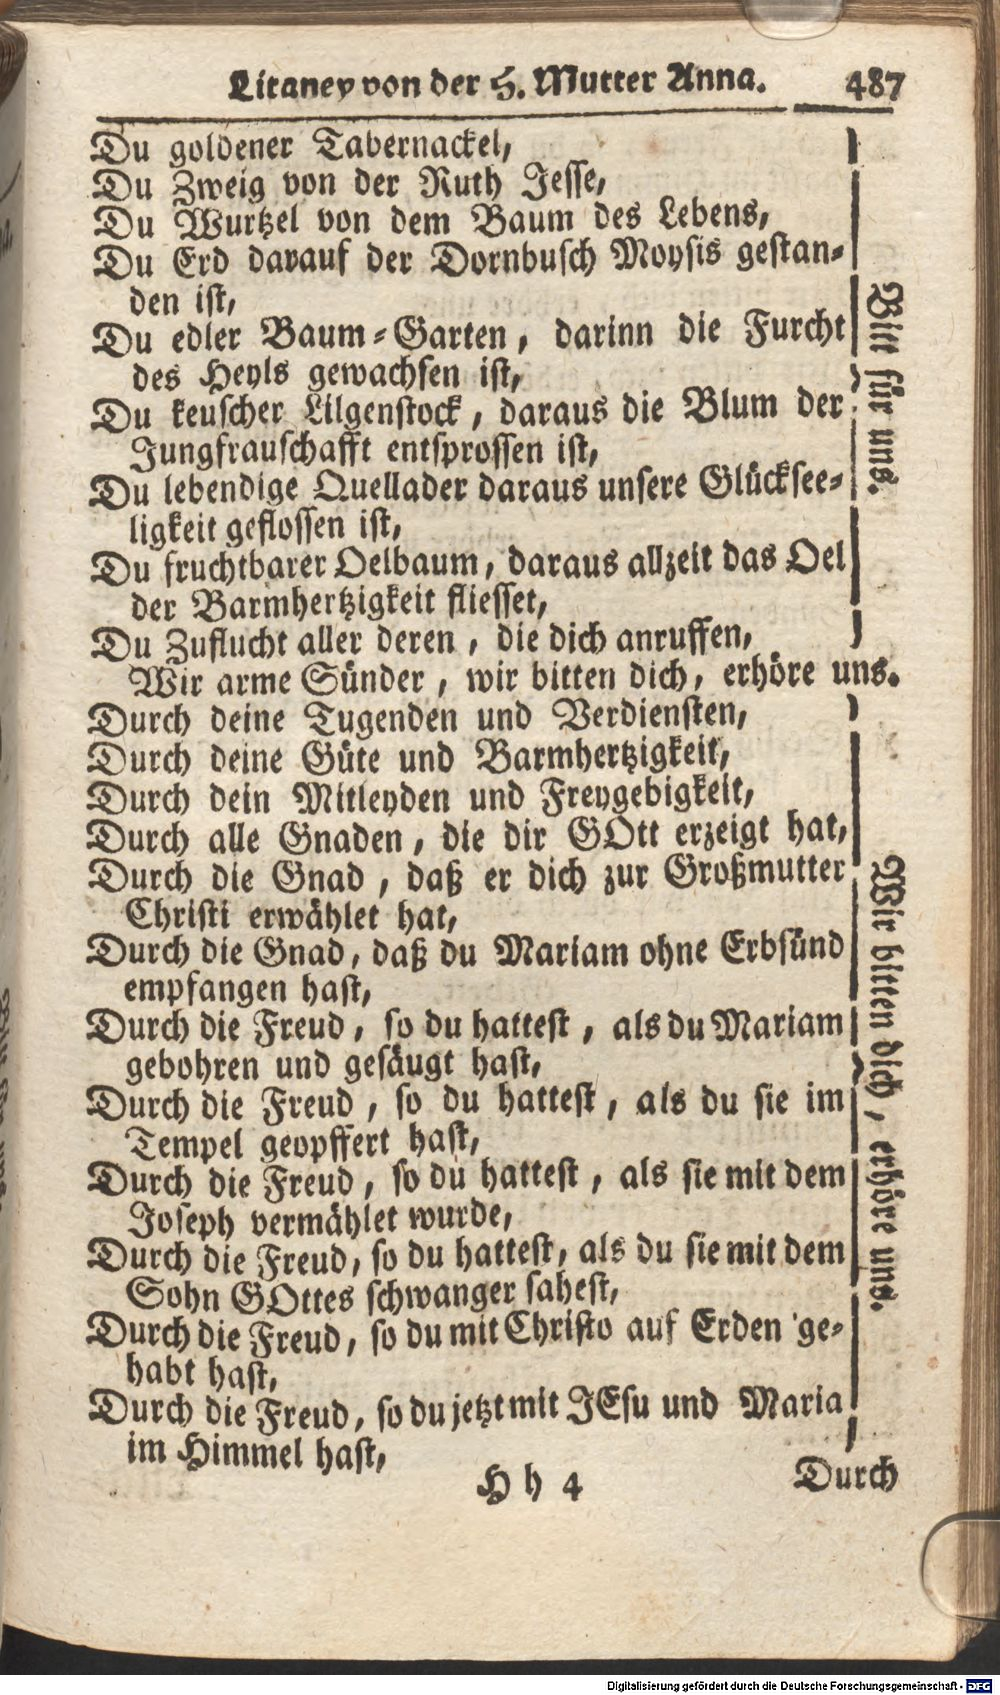 Litaney von der H. Mutter Anna. 487
Du goldener Tabernackel,
Du Zweig von der Ruth Jesse,
Du Wurtzel von dem Baum des Lebens,
Du Erd darauf der Dornbusch Moysis gestan-
den ist,
Du edler Baum-Garten, darinn die Furcht
des Heyls gewachsen ist,
Du keuscher Lilgenstock, daraus die Blum der
Jungfrauschafft entsprossen ist,
Du lebendige Quellader daraus unsere Glücksee-
ligkeit geflossen ist,
Du fruchtbarer Oelbaum, daraus allzeit das Oel
der Barmhertzigkeit fliesset,
Du Zuflucht aller deren, die dich anruffen,
Bitt für uns.
Wir arme Sünder, wir bitten dich, erhöre uns.
Durch deine Tugenden und Verdiensten,
Durch deine Güte und Barmhertzigkeit,
Durch dein Mitleyden und Freygebigkeit,
Durch alle Gnaden, die dir GOtt erzeigt hat,
Durch die Gnad, daß er dich zur Großmutter
Christi erwählet hat,
Durch die Gnad, daß du Mariam ohne Erbsünd
empfangen hast,
Durch die Freud, so du hattest, als du Mariam
gebohren und gesäugt hast,
Durch die Freud, so du hattest, als du sie im
Tempel geopffert hast,
Durch die Freud, so du hattest, als sie mit dem
Joseph vermählet wurde,
Durch die Freud, so du hattest, als du sie mit dem
Sohn GOttes schwanger sahest,
Durch die Freud, so du mit Christo auf Erden ge-
habt hast,
Durch die Freud, so du jetzt mit JEsu und Maria
im Himmel hast,
Wir bitten dich, erhöre uns.
H h 4 Durch
Digitalisierung gefördert durch die Deutsche Forschungsgemeinschaft - DFG